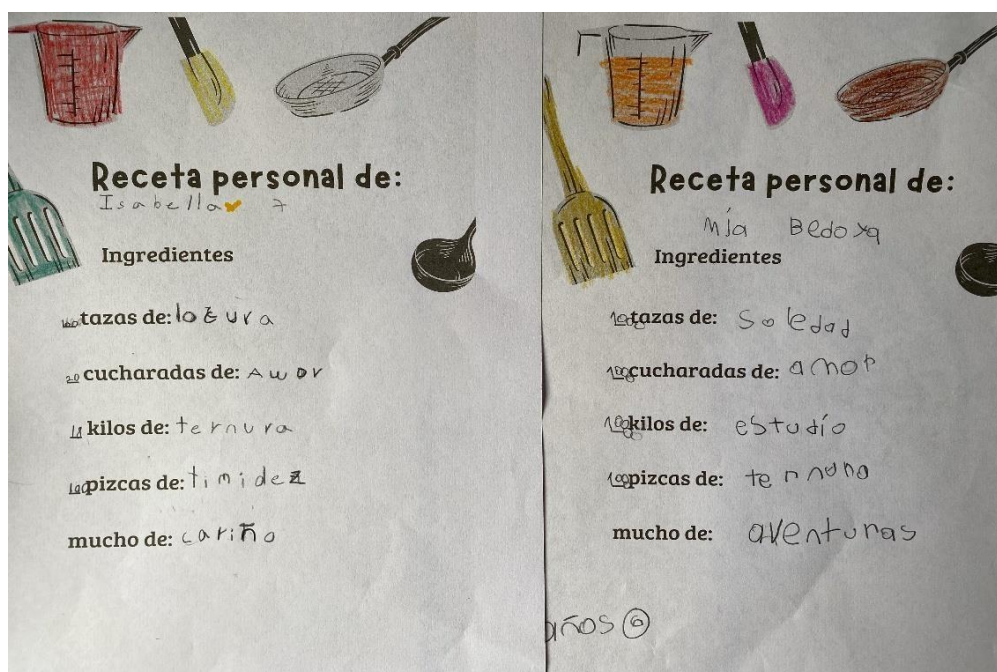 Receta personal de:
Isabella 7
Ingredientes
100 tazas de: locura
20 cucharadas de: Amor
kilos de: ternura
100 pizcas de: timidez
mucho de: cariño
Receta personal de:
mía Bedoya
Ingredientes
100 tazas de: Soledad
100 cucharadas de: amor
100 kilos de: estudío
100 pizcas de: ternura
mucho de: aventuras
años 6